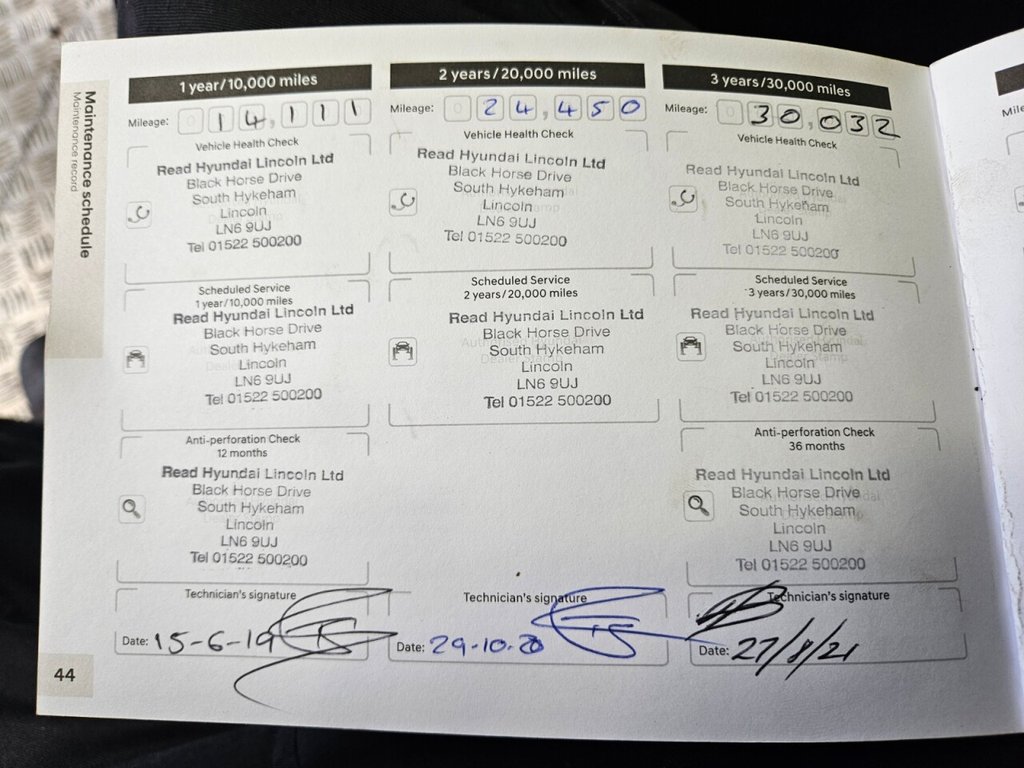 Maintenance schedule
Maintenance record
1 year/10,000 miles
Mileage: 0 14,111
Vehicle Health Check
Read Hyundai Lincoln Ltd
Black Horse Drive
South Hykeham
Lincoln
LN6 9UJ
Tel 01522 500200
Scheduled Service
1 year/10,000 miles
Read Hyundai Lincoln Ltd
Black Horse Drive
South Hykeham
Lincoln
LN6 9UJ
Tel 01522 500200
Anti-perforation Check
12 months
Read Hyundai Lincoln Ltd
Black Horse Drive
South Hykeham
Lincoln
LN6 9UJ
Tel 01522 500200
Technician's signature
Date: 15-6-19
2 years/20,000 miles
Mileage: 0 24,450
Vehicle Health Check
Read Hyundai Lincoln Ltd
Black Horse Drive
South Hykeham
Lincoln
LN6 9UJ
Tel 01522 500200
Scheduled Service
2 years/20,000 miles
Read Hyundai Lincoln Ltd
Black Horse Drive
South Hykeham
Lincoln
LN6 9UJ
Tel 01522 500200
Technician's signature
Date: 29-10-20
3 years/30,000 miles
Mileage: 0 30,032
Vehicle Health Check
Read Hyundai Lincoln Ltd
Black Horse Drive
South Hykeham
Lincoln
LN6 9UJ
Tel 01522 500200
Scheduled Service
3 years/30,000 miles
Read Hyundai Lincoln Ltd
Black Horse Drive
South Hykeham
Lincoln
LN6 9UJ
Tel 01522 500200
Anti-perforation Check
36 months
Read Hyundai Lincoln Ltd
Black Horse Drive
South Hykeham
Lincoln
LN6 9UJ
Tel 01522 500200
Technician's signature
Date: 27/8/21
44